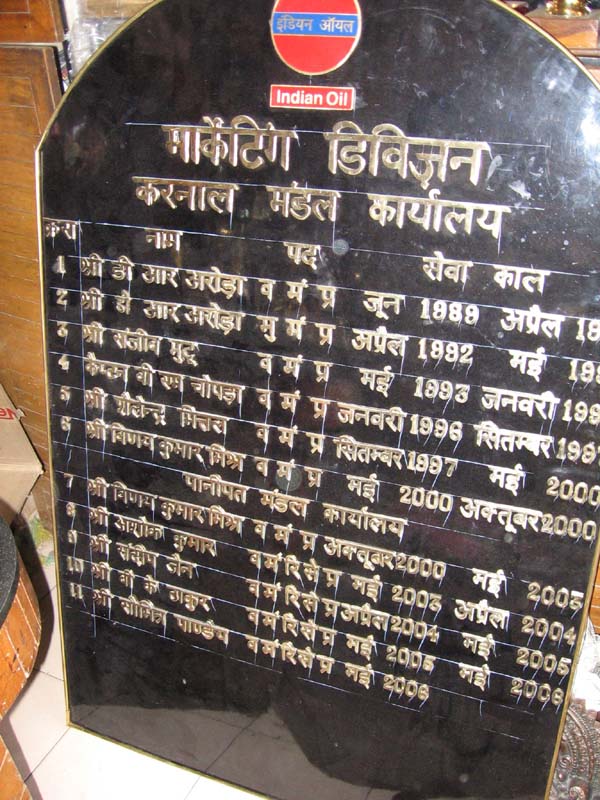 इंडियन ऑयल
Indian Oil
मार्केटिंग डिविज़न
करनाल मंडल कार्यालय
क्ररा नाम पद सेवा काल
1 श्री डी आर अरोड़ा व मं प्र जून 1989 अप्रैल
2 श्री डी आर अरोड़ा मु मं प्र अप्रैल 1992 मई
3 श्री संजीव मुटू व मं प्र मई 1993 जनवरी
4 कैप्टन वी एम चोपड़ा व मं प्र जनवरी 1996 सितम्बर
5 श्री शैलेन्द्र मित्तल व मं प्र सितम्बर 1997 मई 2000
6 श्री विणय कुमार मिश्र व मं प्र मई 2000 अक्तूबर 2000
पानीपत मंडल कार्यालय
7 श्री विणय कुमार मिश्र व मं प्र अक्तूबर 2000 मई 2003
8 श्री अशोक कुमार व मं रि से प्र मई 2003 अप्रैल 2004
9 श्री संदीप जैन व मं रि से प्र अप्रैल 2004 मई 2005
10 श्री वी के ठाकुर व मं रि से प्र मई 2005 मई 2006
11 श्री सौमित्र पाण्डेय व मं रि से प्र मई 2006